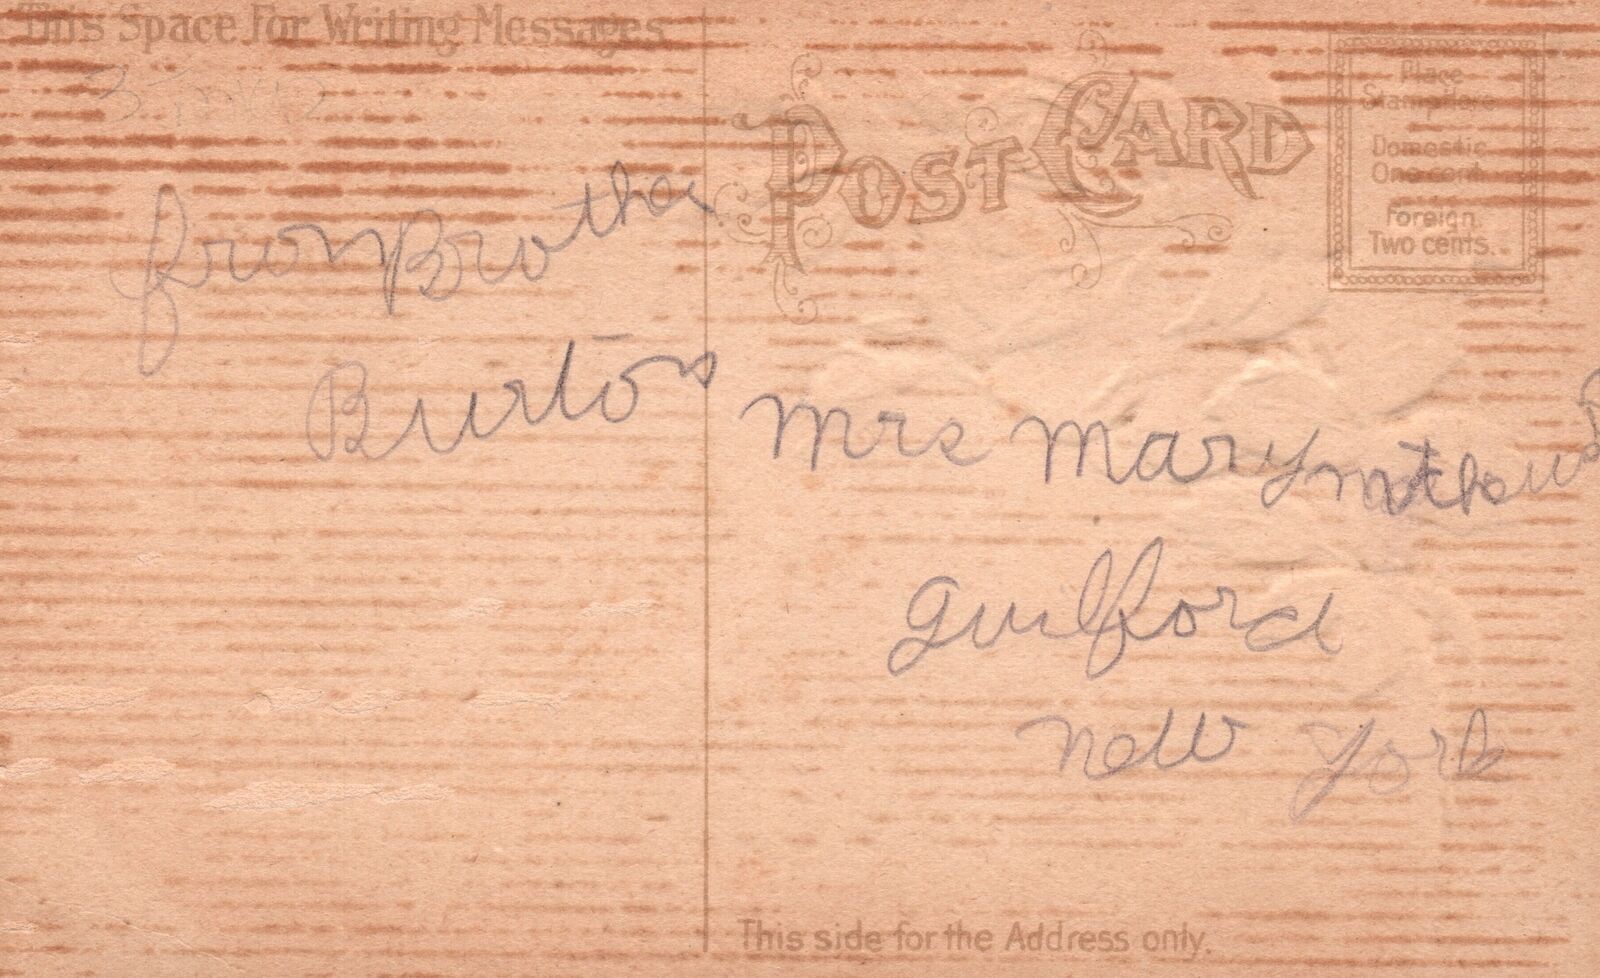 This Space For Writing Messages
from Brother
Burton
POST CARD
Place
Stamp Here
Domestic
One cent.
Foreign
Two cents.
Mrs Mary Mathews
Guilford
New York
This side for the Address only.